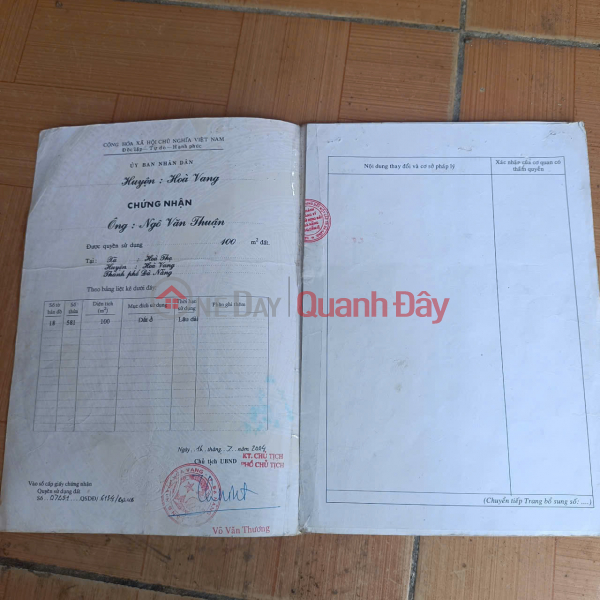 CỘNG HÒA XÃ HỘI CHỦ NGHĨA VIỆT NAM
Độc lập - Tự do - Hạnh phúc
ỦY BAN NHÂN DÂN
Huyện : Hoà Vang
CHỨNG NHẬN
Ông : Ngô Văn Thuận
Được quyền sử dụng 100 m² đất.
Tại : Xã : Hoà Thọ
Huyện : Hoà Vang
Thành phố Đà Nẵng
Theo bảng liệt kê dưới đây
Số tờ bản đồ Số thửa Diện tích (m²) Mục đích sử dụng Thời hạn sử dụng Phần ghi thêm
18 581 100 Đất ở Lâu dài
Ngày 16 tháng 7 năm 2004
Chủ tịch UBND
KT. CHỦ TỊCH
PHÓ CHỦ TỊCH
Vào sổ cấp giấy chứng nhận
Quyền sử dụng đất
Số QSDĐ/
Võ Văn Thương
Nội dung thay đổi và cơ sở pháp lý
Xác nhận của cơ quan có thẩm quyền
(Chuyển tiếp Trang bổ sung số: ....)
ONEDAY Quanh Đây